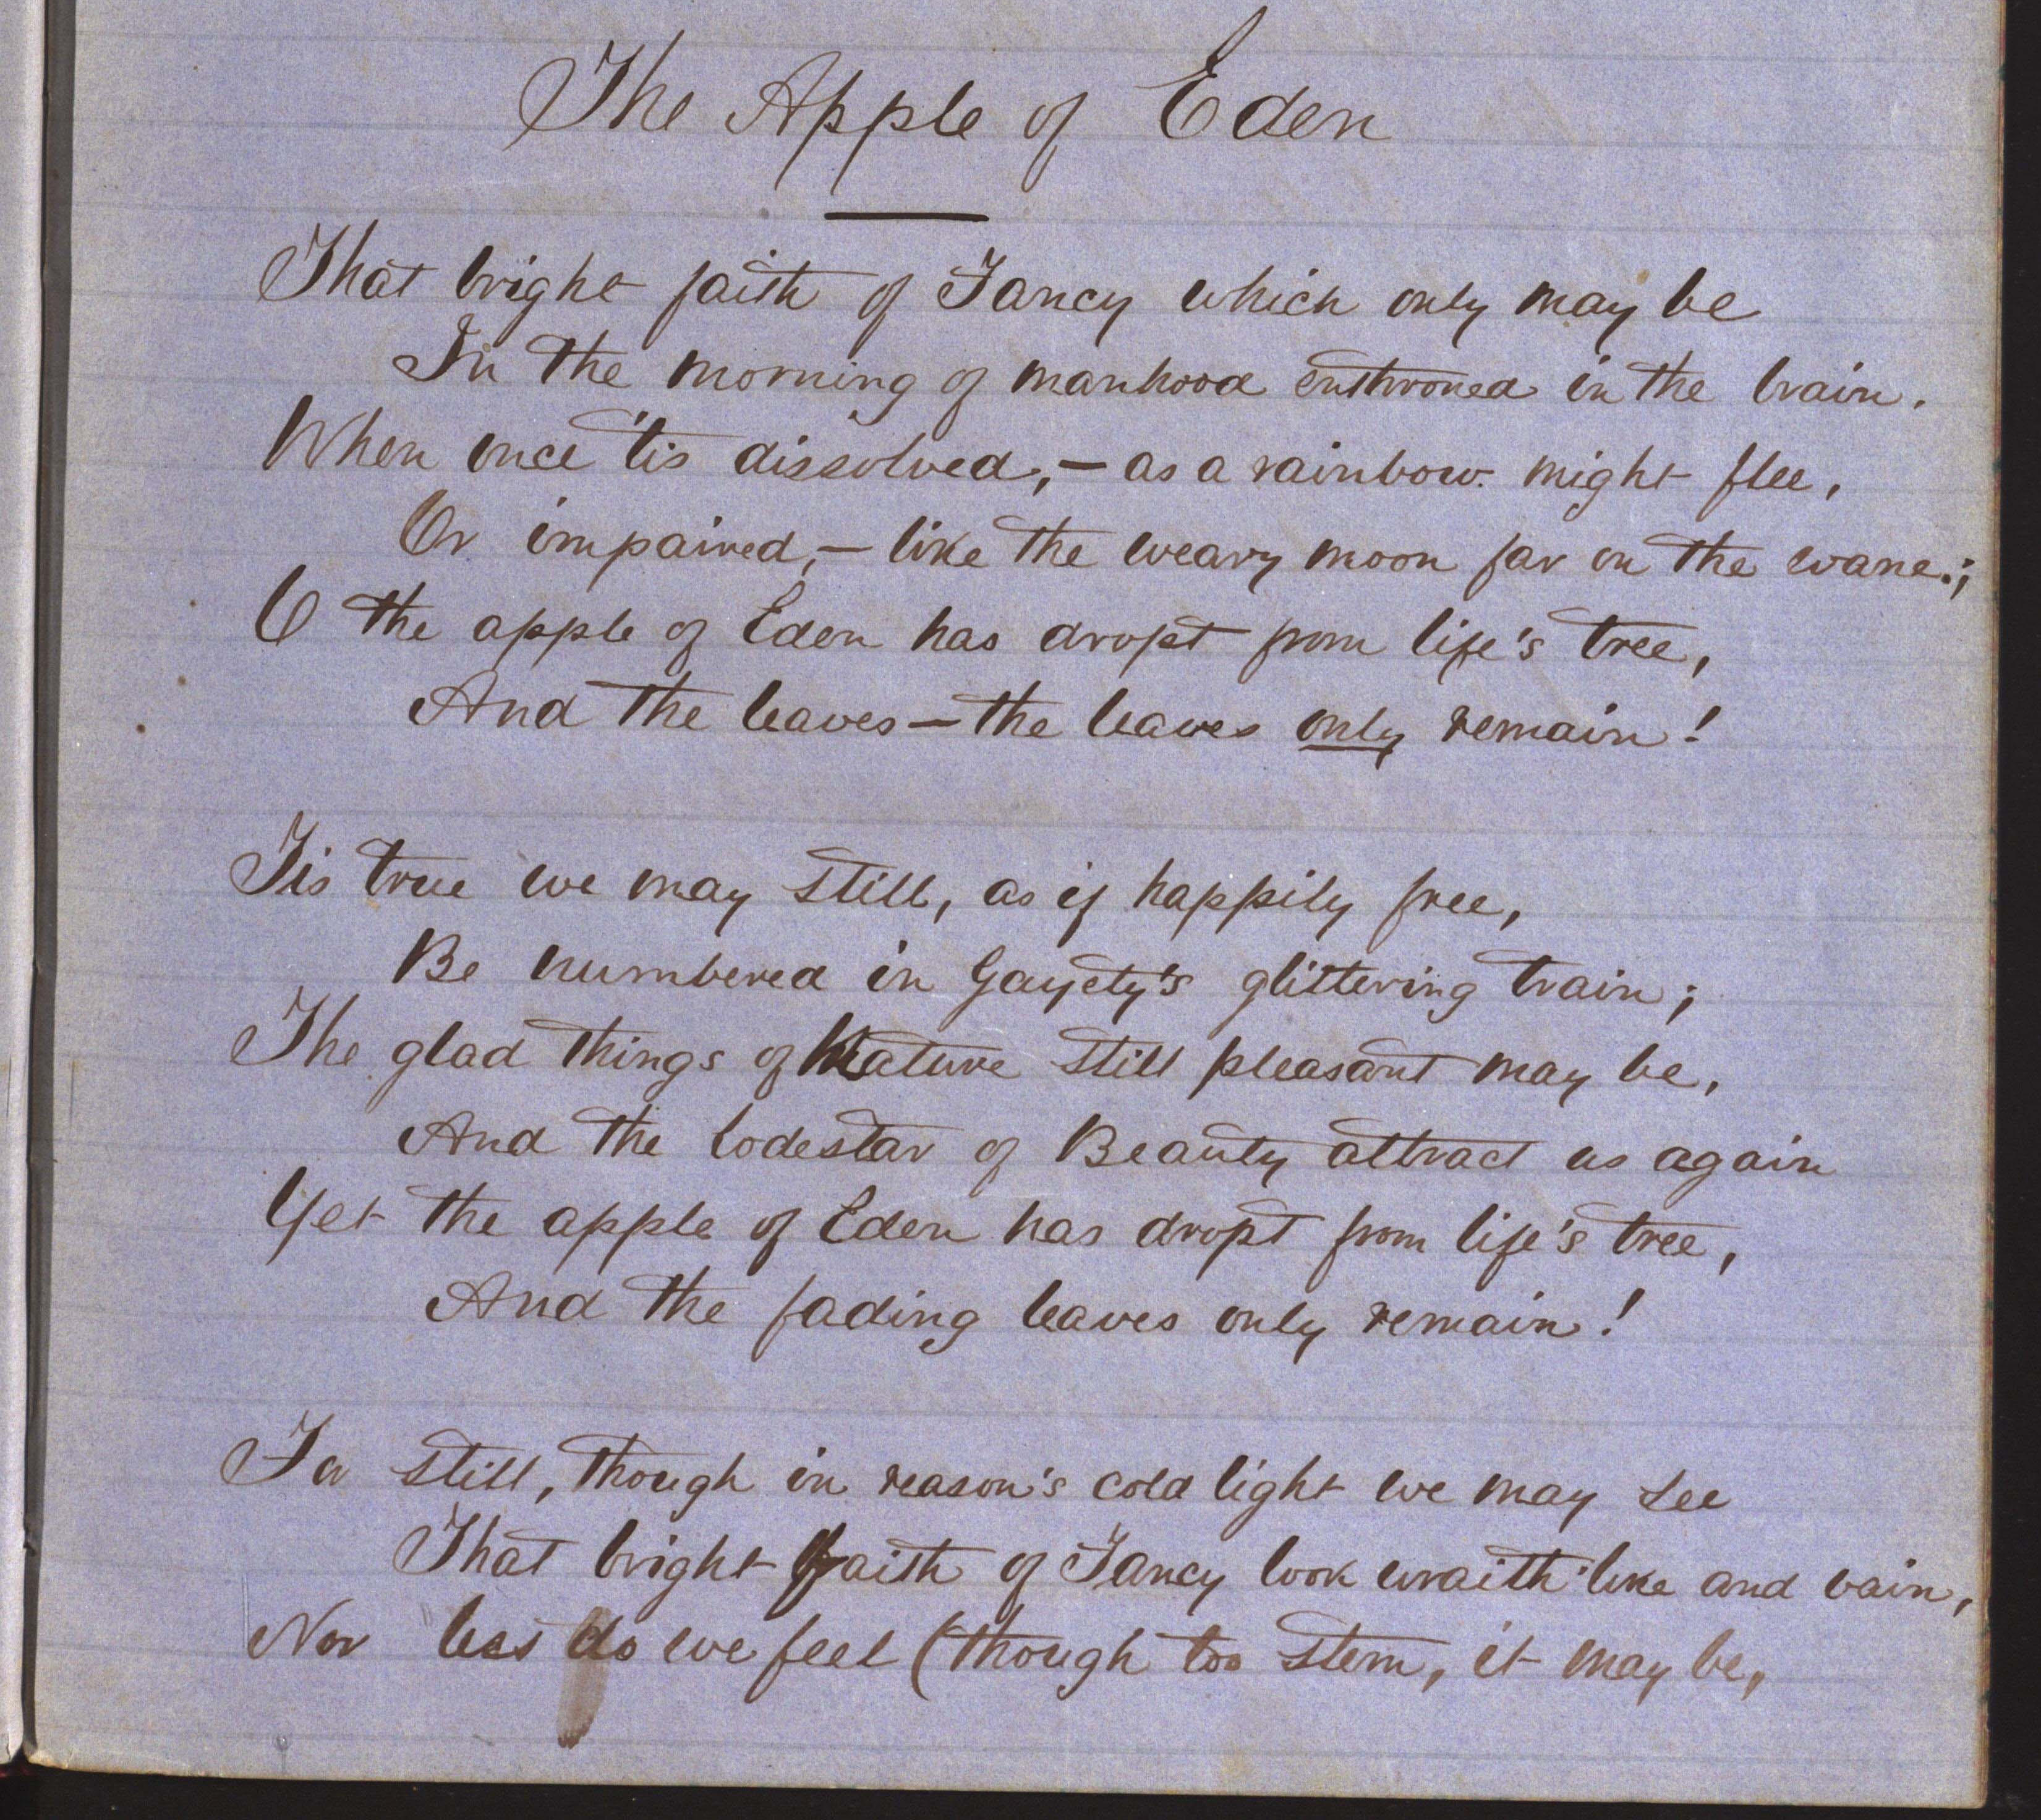 The Apple of Eden
That bright faith of Fancy which only may be
In the morning of manhood enthroned in the brain.
When once 'tis dissolved, — as a rainbow might flee,
Or impaired, — like the weary moon far on the wane.;
O the apple of Eden has dropt from life's tree,
And the leaves — the leaves only remain!
Tis true we may still, as if happily free,
Be numbered in Gayety's glittering train;
The glad things of Nature still pleasant may be,
And the lodestar of Beauty attract us again
Yet the apple of Eden has dropt from life's tree,
And the fading leaves only remain!
For still, though in reason's cold light we may see
That bright faith of Fancy look wraith-like and vain,
Nor less do we feel (though too stern, it may be,